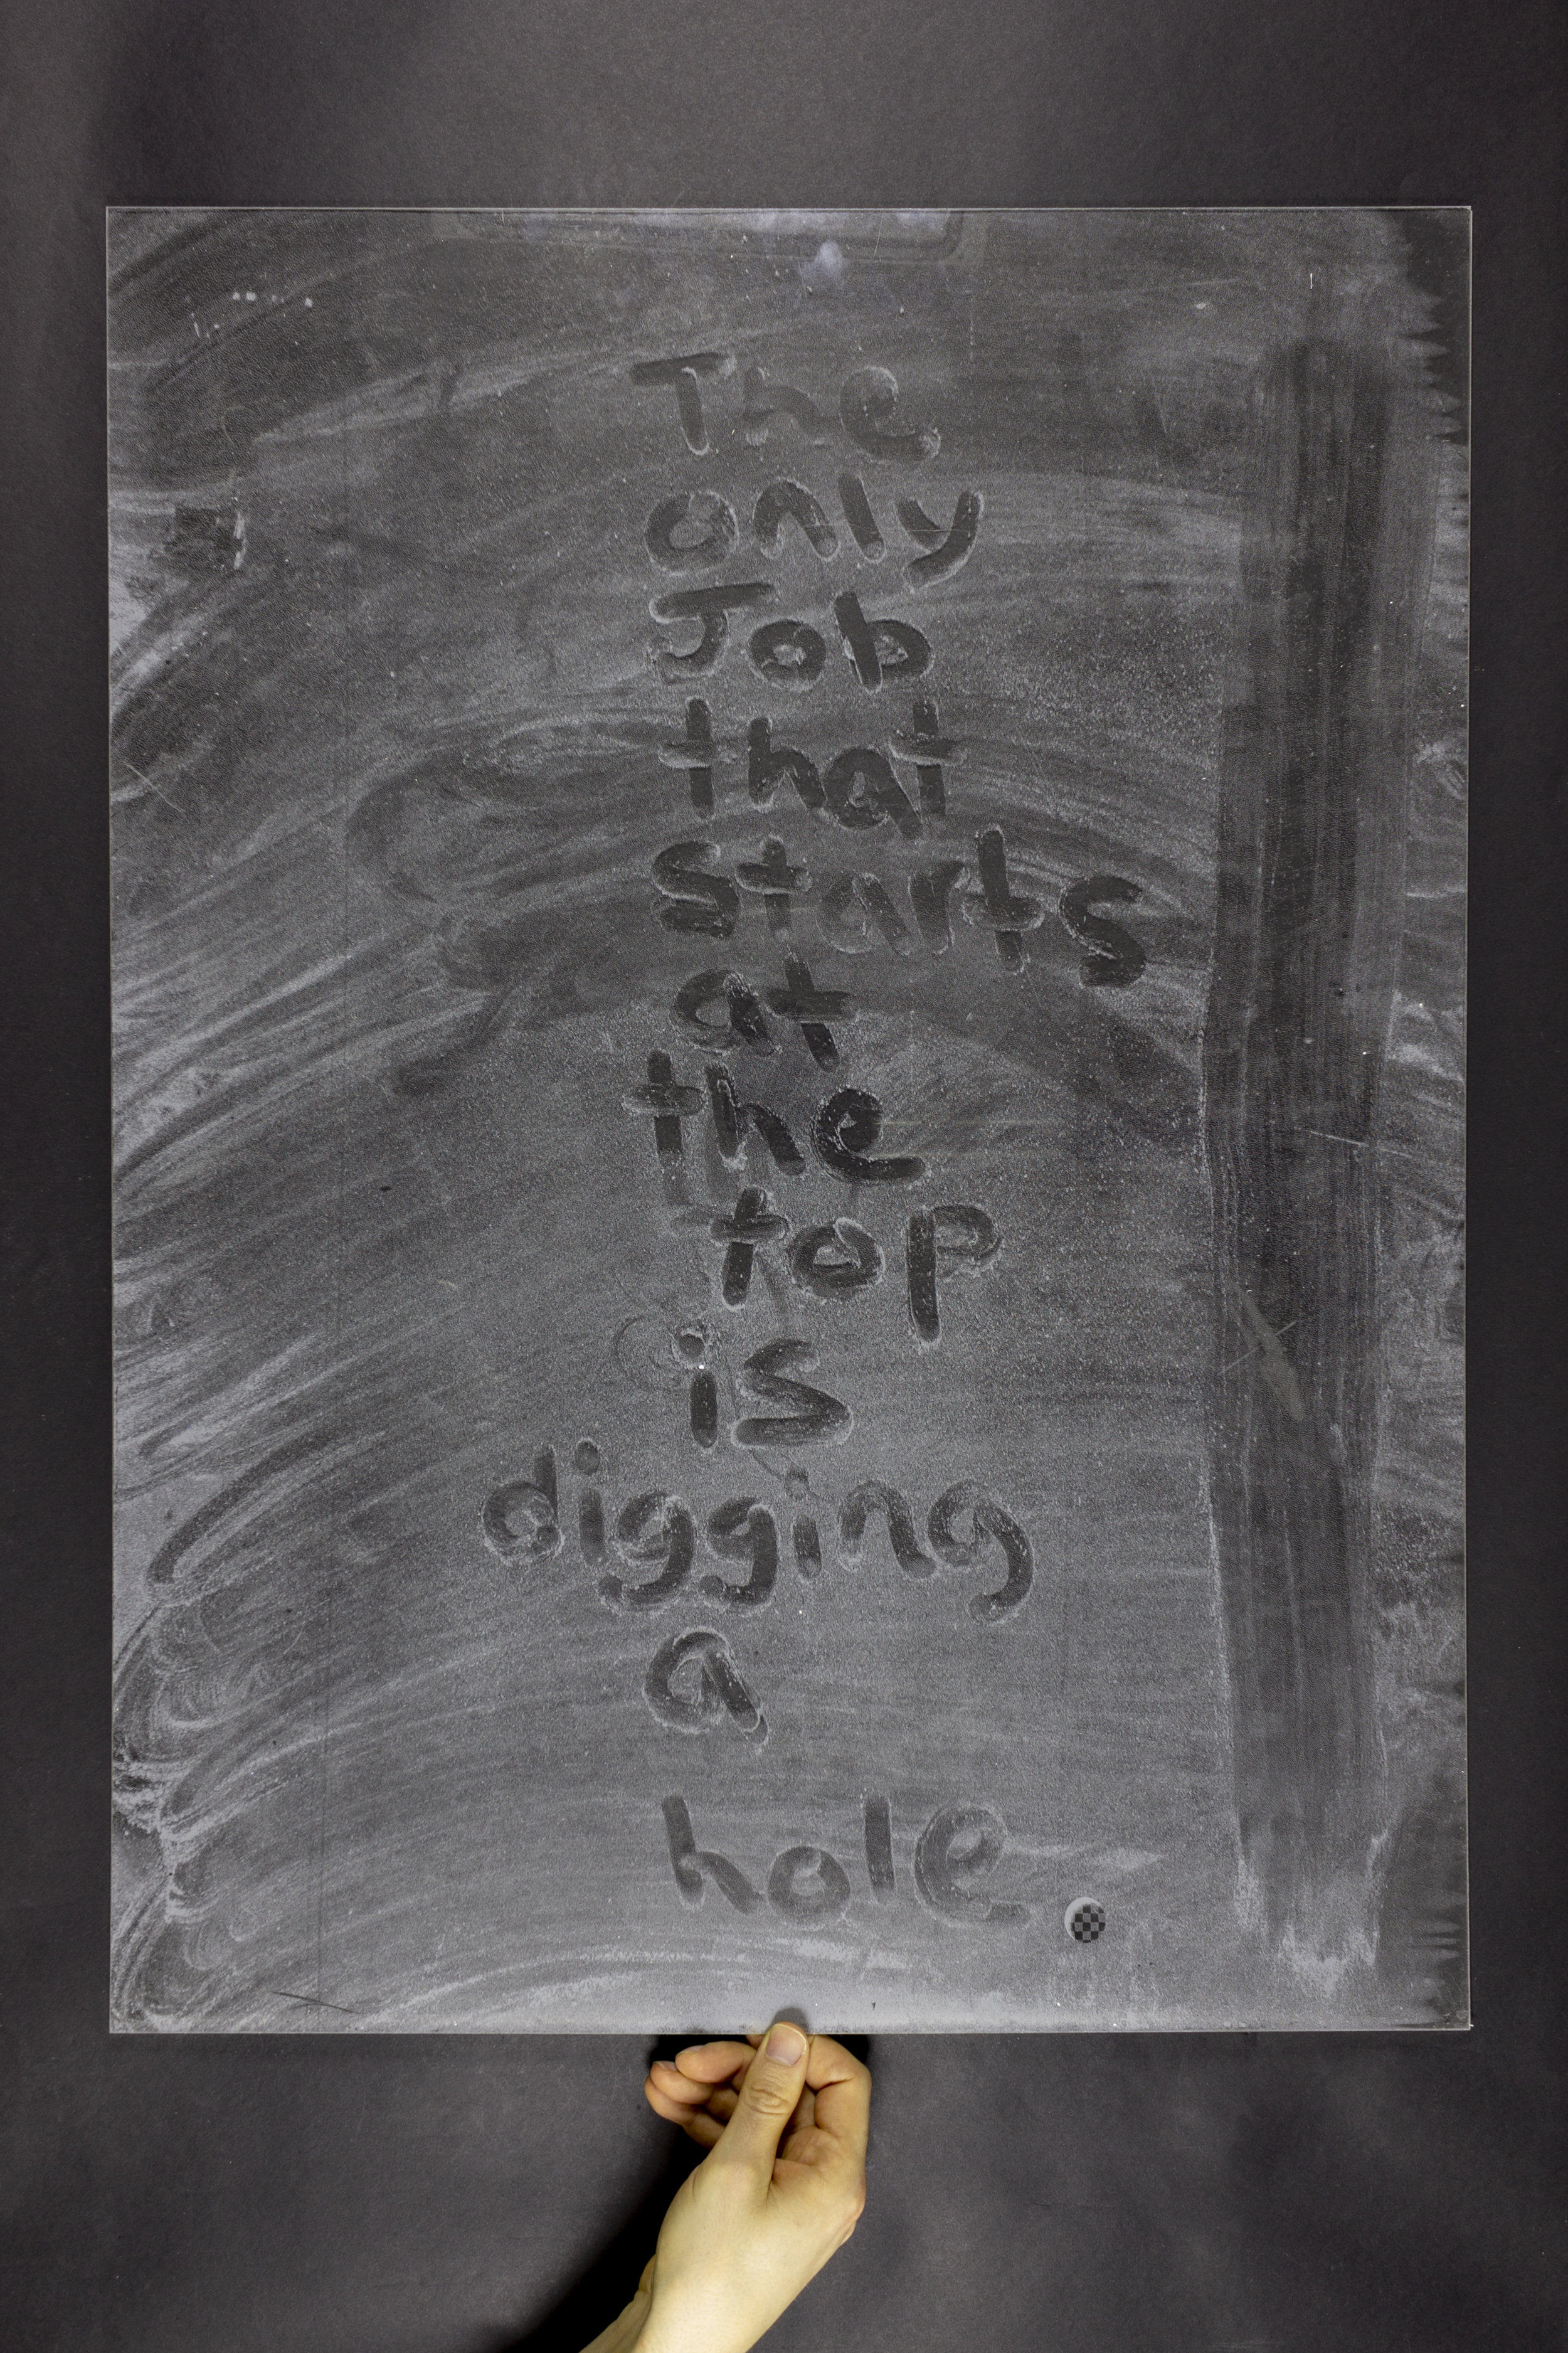 The
only
Job
that
starts
at
the
top
is
digging
a
hole.